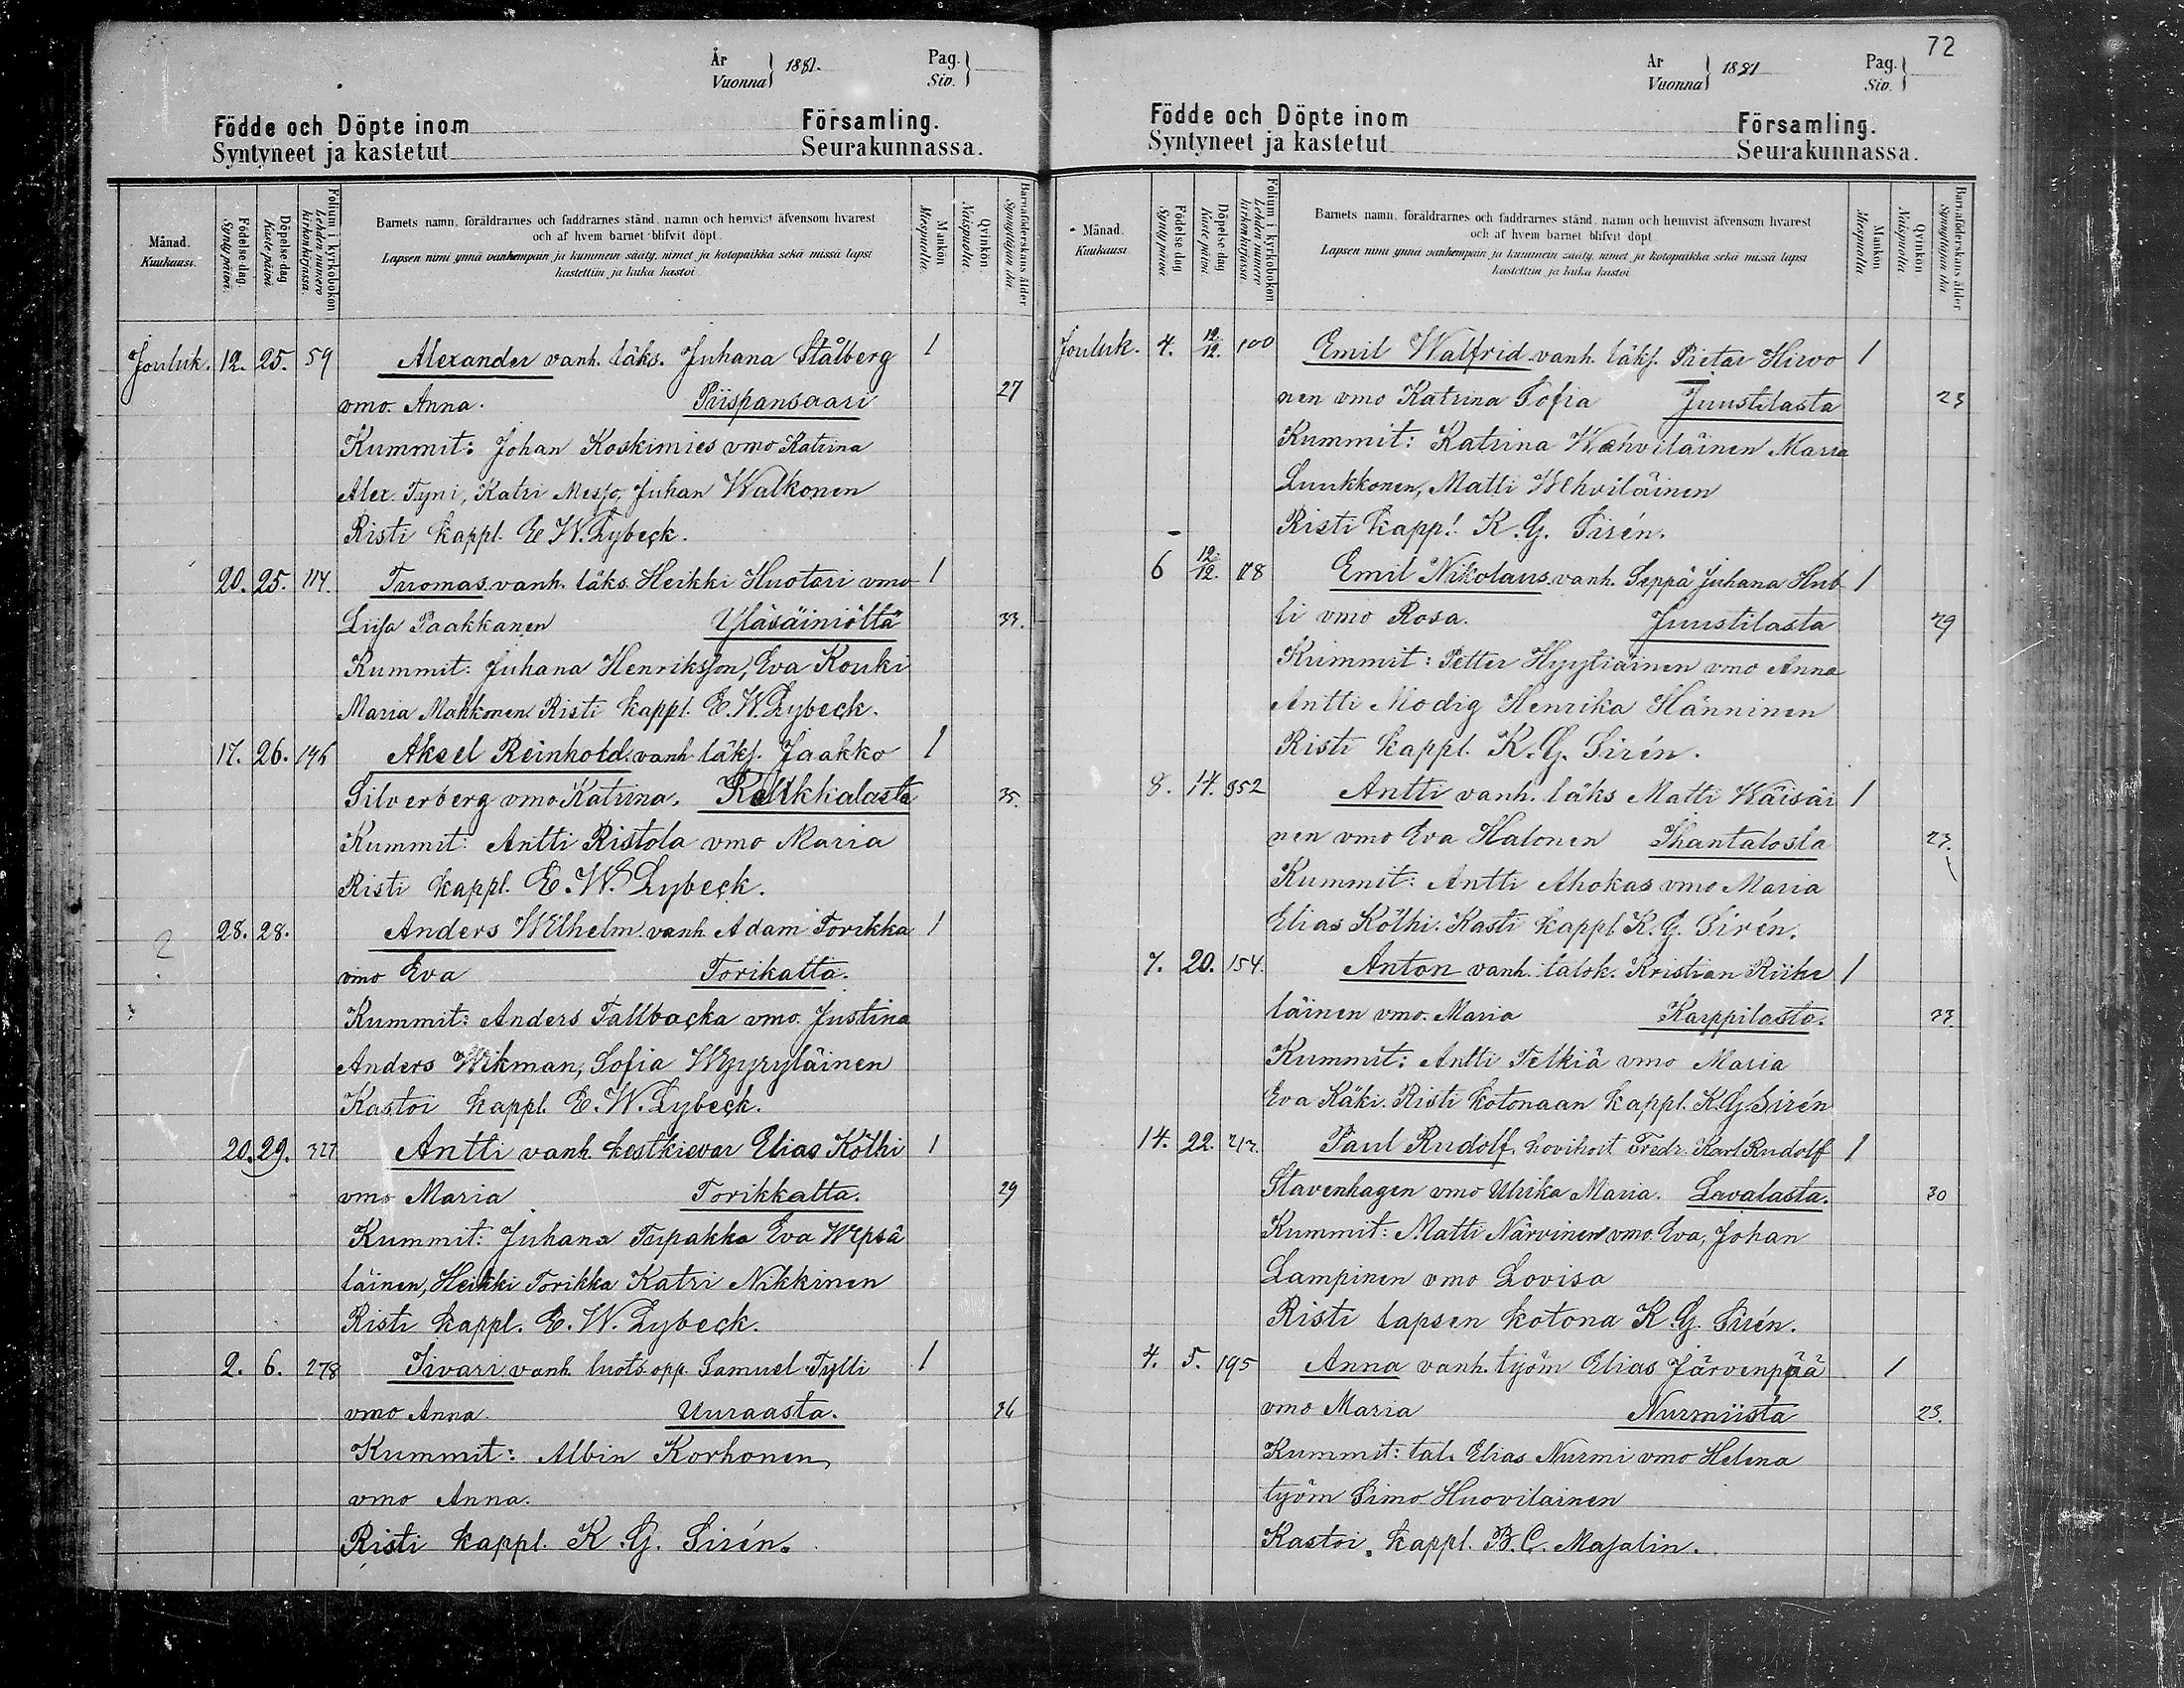 År
Vuonna
1881.
Pag.
Siv.
Födde och Döpte inom Församling.
Syntyneet ja kastetut Seurakunnassa.
Månad.
Kuukausi.
Födelse-dag
Syntymäpäivä.
Döpelse-dag
Kastepäivä
Folium i kyrkobokon
Lehden numero
kirkonkirjassa.
Barnets namn, föräldrarnes och faddrarnes stånd, namn och hemvist äfvensom hvarest
och af hvem barnet blifvit döpt.
Lapsen nimi ynnä vanhempain ja kummein sääty, nimet ja kotopaikka sekä missä lapsi
kastettiin ja kuka kastoi.
Mankön
Miespuolia
Qvinkön
Naispuolia
Barnaföderskans ålder
Synnyttäjän ikä
Jouluk. 12. 25. 59 Alexander vanh. läks. Juhana Stålberg 1
vmo. Anna. Piispansaari 27
Kummit: Johan Koskimies vmo Katrina
Alex. Tyni, Katri Mesjo, Juhan Walkonen
Risti kappl. E W. Lybeck.
20. 25. 114. Tuomas vanh. läks. Heikki Huotari vmo 1
Liisa Paakkanen Yläsäiniöltä 33.
Kummit: Juhana Henriksson, Eva Kouki
Maria Makkonen. Risti kappl. E. W. Lybeck.
17. 26. 196 Aksel Reinhold vanh läks. Jaakko 1
Silverberg vmo Katrina. Kaukkalasta 35.
Kummit: Antti Ristola vmo Maria
Risti kappl. E. W. Lybeck.
? 28. 28. Anders Wilhelm vanh. Adam Torikka 1
vmo Eva Torikatta.
Kummit: Anders Tallbacka vmo. Justina
Anders Wikman, Sofia Wyyryläinen
Kastoi kappl. E. W. Lybeck.
20. 29. 327 Antti vanh. kestkievar Elias Köthi 1
vmo Maria Torikkatta. 29
Kummit: Juhana Tupakka Eva Wepsä
läinen, Heikki Torikka Katri Nikkinen
Risti kappl. E. W. Lybeck.
2. 6. 278 Iivari vanh. luots. opp. Samuel Tylli 1
vmo Anna. Uuraasta. 36
Kummit: Albin Korhonen
vmo Anna.
Risti kappl. K. G. Sirén.
72
År
Vuonna
1881
Pag.
Siv.
Födde och Döpte inom Församling.
Syntyneet ja kastetut Seurakunnassa.
Månad.
Kuukausi
Födelse-dag
Syntymäpäivä
Döpelse-dag
Kastepäivä
Folium i kyrkobokon
Lehden numero
kirkonkirjassa
Barnets namn, föräldrarnes och faddrarnes stånd, namn och hemvist äfvensom hvarest
och af hvem barnet blifvit döpt
Lapsen nimi ynnä vanhempain ja kummein sääty, nimet ja kotopaikka sekä missä lapsi
kastettiin ja kuka kastoi
Mankön
Miespuolia
Qvinkön
Naispuolia
Barnaföderskans ålder
Synnyttäjän ikä
Jouluk. 4. 12/12. 100 Emil Walfrid vanh. läks. Pietar Hirvo 1
nen vmo Katrina Sofia Juustilasta 23
Kummit: Katrina Wehviläinen Maria
Luukkonen, Matti Wehviläinen
Risti kappl. K. G. Sirén.
6 12/12. 118 Emil Nikolaus vanh. Seppä Juhana Hub 1
li vmo Rosa. Juustilasta 29
Kummit: Petter Hyytiäinen vmo Anna
Antti Modig Henrika Hänninen
Risti kappl. K. G. Sirén.
8. 14. 352 Antti vanh. läks Matti Wäisäi 1
nen vmo Eva Halonen Ihantalosta 23.
Kummit: Antti Ahokas vmo Maria
Elias Köthi. Kasti kappl. K. G. Sirén.
7. 20. 154. Anton vanh. talok. Kristian Riihe 1
läinen vmo. Maria Karppilasta. 33.
Kummit: Antti Telkiä vmo Maria
Eva Käki. Risti kotonaan kappl. K. G Sirén
14. 22. 213. Paul Rudolf, hovihoit Fredr. Karl Rudolf 1
Stavenhagen vmo Ulrika Maria. Lavalasta. 30
Kummit: Matti Närvinen vmo. Eva, Johan
Lampinen vmo Lovisa
Risti lapsen kotona K. G. Sirén.
4. 5. 195 Anna vanh. työm Elias Järvenpää 1
vmo Maria Nurmiista 23.
Kummit: tal. Elias Nurmi vmo Helena
työm Simo Huovilainen
Kastoi kappl. B. C. Masalin.